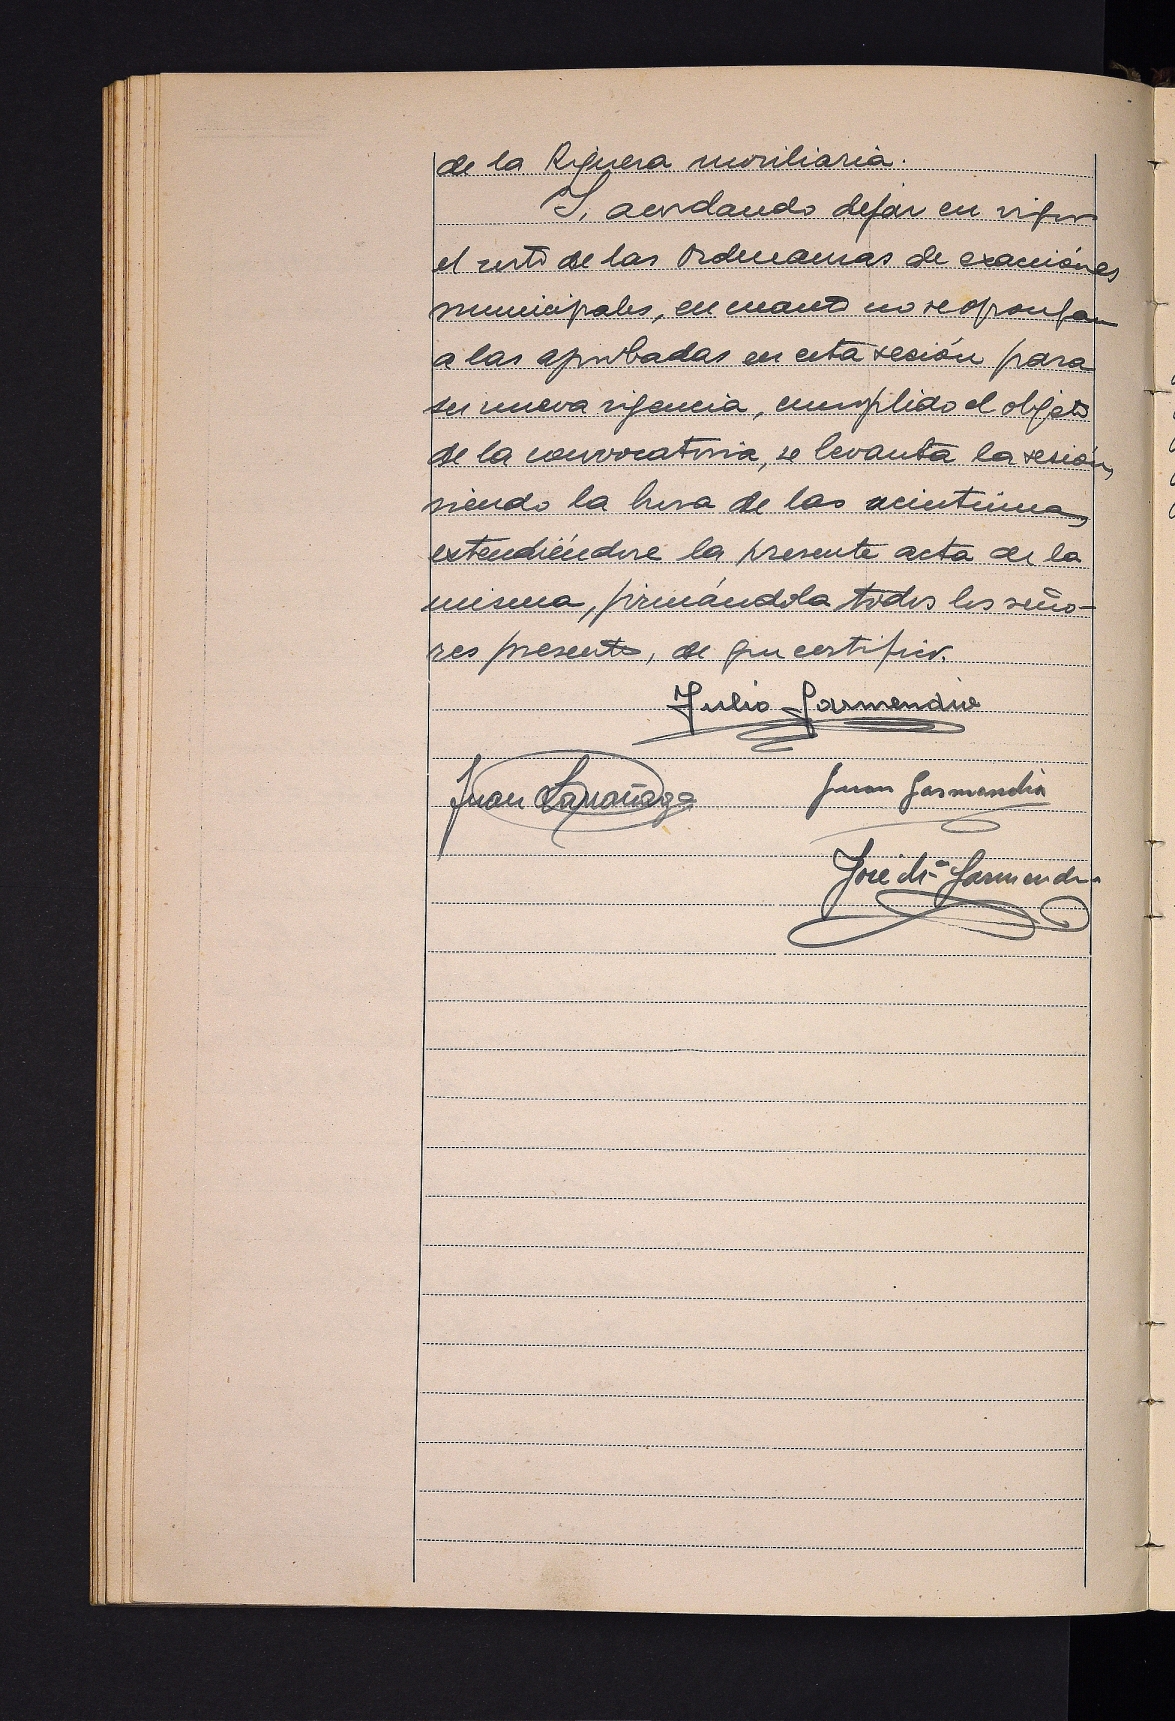 de la Riquera moviliaria.
Y, acordando dejar en vigor
el resto de las Ordenanzas de exacciones
municipales, en cuanto no se opongan
a las aprobadas en esta sesión para
su nueva vigencia, cumplido el objeto
de la convocatoria, se levanta la sesión,
siendo la hora de las veintiuna,
extendiéndose la presente acta de la
misma, firmándola todos los seño-
res presents, de que certifico.
Julio Garmendia
Juan Larrañaga Juan Garmendia
José Mª Garmendia